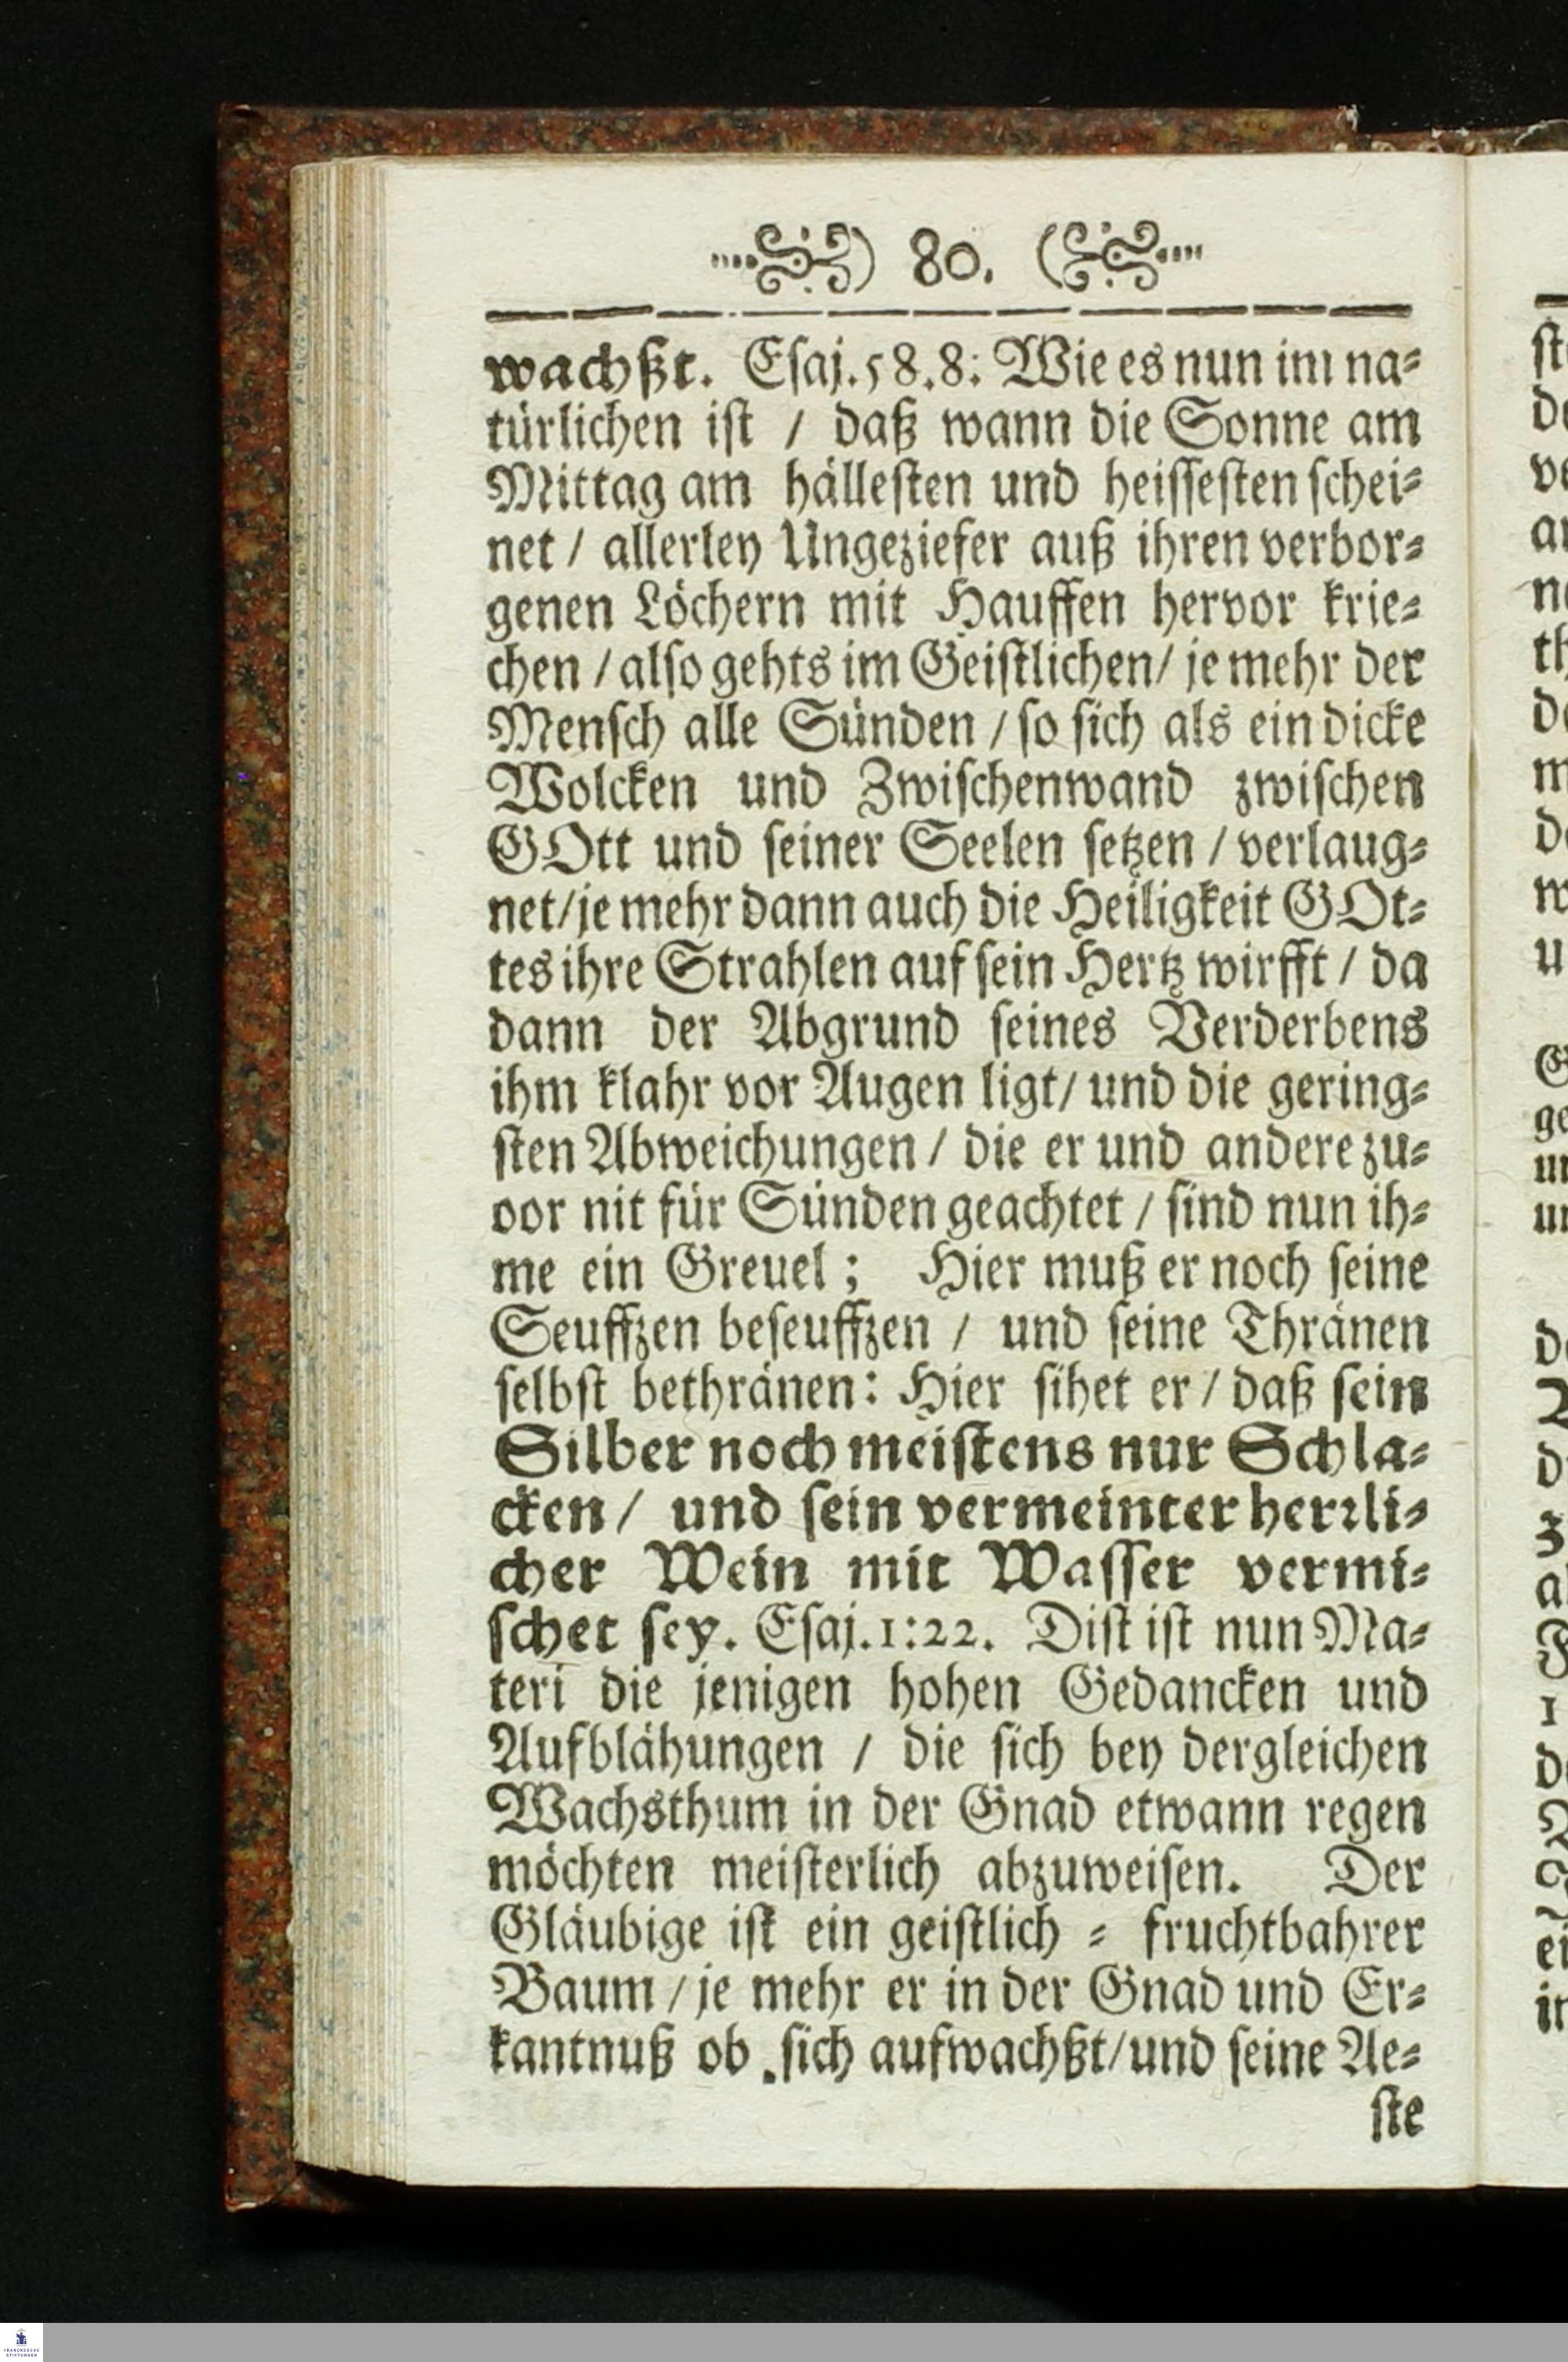 ) 80. (
wachßt. Eſaj. 58. 8: Wie es nun im na⸗
türlichen iſt / daß wann die Sonne am
Mittag am hälleſten und heiſſeſten ſchei⸗
net / allerley Ungeziefer auß ihren verbor⸗
genen Löchern mit Hauffen hervor krie⸗
chen / alſo gehts im Geiſtlichen/ je mehr der
Menſch alle Sünden / ſo ſich als ein dicke
Wolcken und Zwiſchenwand zwiſchen
GOtt und ſeiner Seelen ſetzen / verlaug⸗
net/je mehr dann auch die Heiligkeit GOt⸗
tes ihre Strahlen auf ſein Hertz wirfft / da
dann der Abgrund ſeines Verderbens
ihm klahr vor Augen ligt/ und die gering⸗
ſten Abweichungen / die er und andere zu⸗
vor nit für Sünden geachtet / ſind nun ih⸗
me ein Greuel ; Hier muß er noch ſeine
Seuffzen beſeuffzen / und ſeine Thränen
ſelbſt bethränen: Hier ſihet er / daß ſein
Silber noch meiſtens nur Schla⸗
cken / und ſein vermeinter herꝛli⸗
cher Wein mit Waſſer vermi⸗
ſchet ſey. Eſaj. 1:22. Diſt iſt nun Ma⸗
teri die jenigen hohen Gedancken und
Aufblähungen / die ſich bey dergleichen
Wachsthum in der Gnad etwann regen
möchten meiſterlich abzuweiſen. Der
Gläubige iſt ein geiſtlich ⸗ fruchtbahrer
Baum / je mehr er in der Gnad und Er⸗
kantnuß ob ſich aufwachßt/und ſeine Ae⸗
ſte